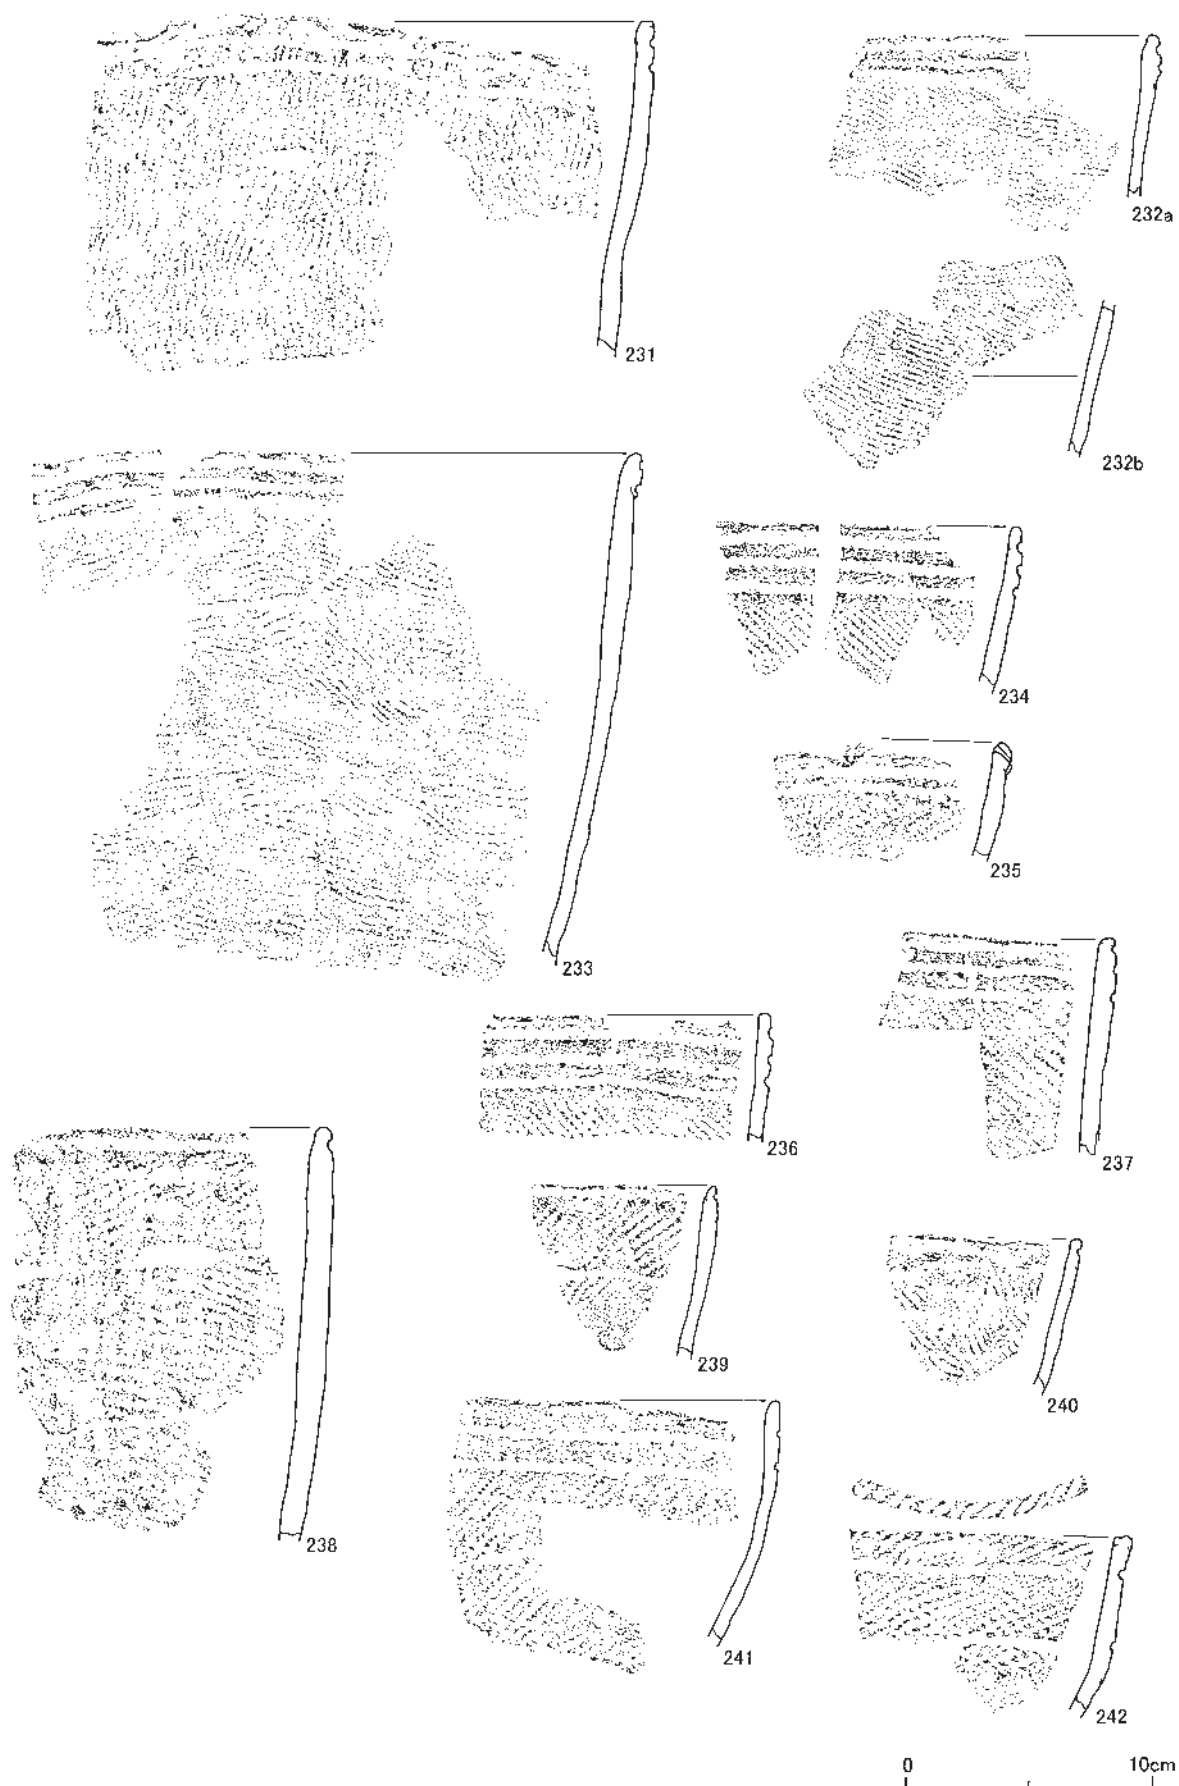 231
232a
232b
233
234
235
236
237
238
239
240
241
242
0 10cm